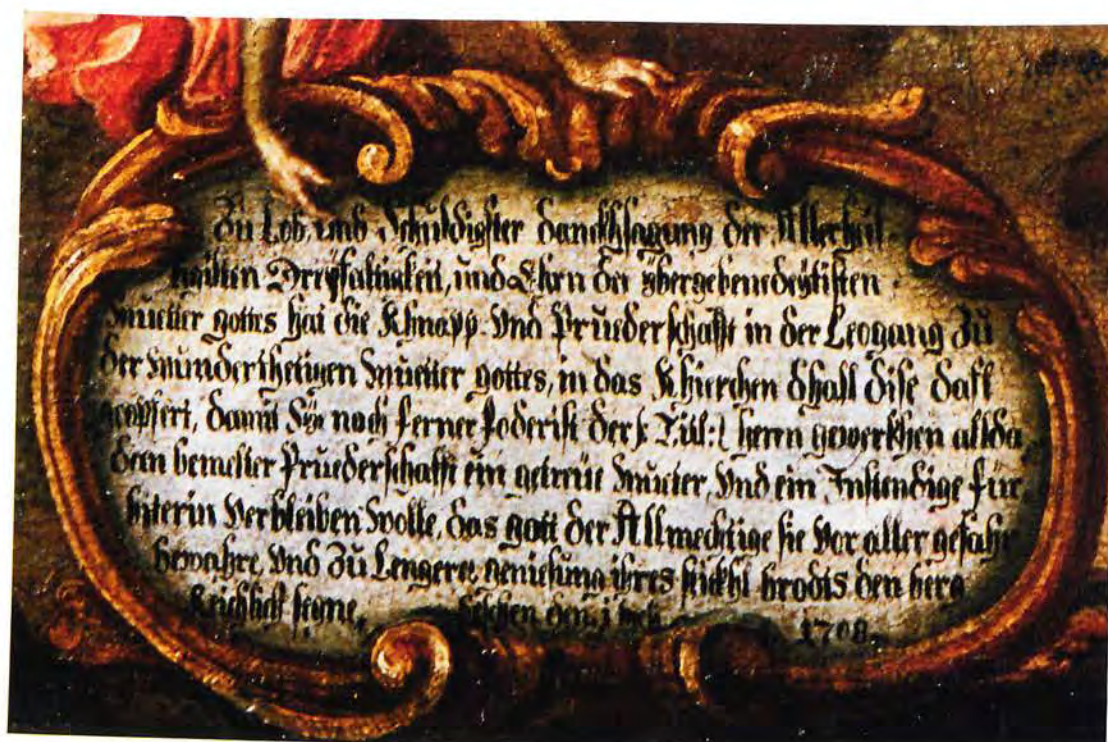 Zu Lob, und Schuldigster danckhsagung der Allerheil
igisten Dreyfaltigkeit, und Ehrn der ybergebenedeytisten
Muetter gottes hat die Khnapp- Und Pruederschafft in der Leogang Zu
der wunderthetigen Muetter gottes, in das Khirchenthall dise dafl
geopfert, damit Sye noch ferner foderist der Titl: herrn gewerkhen alda
dan bemelter Pruederschafft ein getreue Mueter, Und ein Instendige für
bitterin Verbleiben Wolle, das gott der Allmechtige sie Vor aller gefahr
bewahre, Und Zu Lengerer geniessung ihres stückhl brodts den berg
Reichlich segne, den 1708